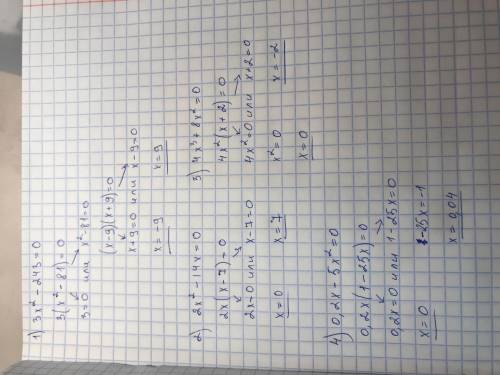 1) 3x² - 243 = 0
3(x² - 81) = 0
3 = 0 или x² - 81 = 0
(x-9)(x+9) = 0
x+9 = 0 или x-9 = 0
x = -9 x = 9
2) 2x² - 14x = 0
2x(x-7) = 0
2x = 0 или x-7 = 0
x = 0 x = 7
3) 4x³ + 8x² = 0
4x²(x+2) = 0
4x² = 0 или x+2 = 0
x² = 0 x = -2
x = 0
4) 0,2x - 5x² = 0
0,2x(1-25x) = 0
0,2x = 0 или 1-25x = 0
x = 0 -25x = -1
x = 0,04